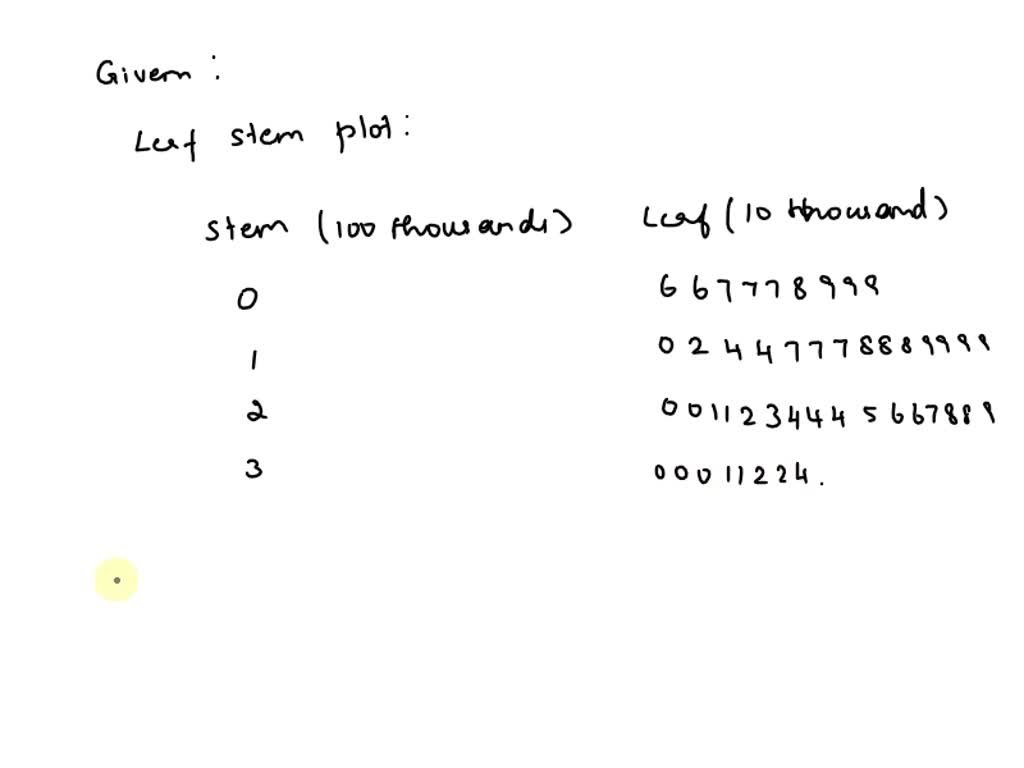 Givern :
Leaf stem plot :
stem (100 thousands) Leaf (10 thousand)
0 6 6 7 7 7 8 9 9 9
1 0 2 4 4 7 7 7 8 8 8 9 9 9 9
2 0 0 1 1 2 3 4 4 4 5 6 6 7 8 8 9
3 0 0 0 1 1 2 2 4 .